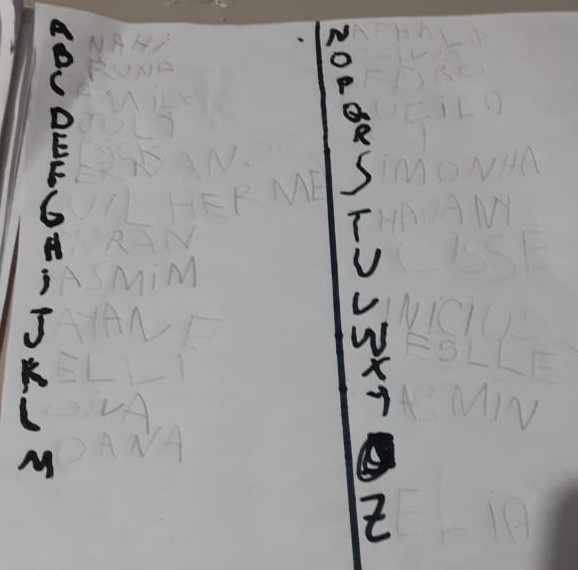 A NAHI
BRUNA
CAMILE
D JULI
E
FERNAN
GUILHERME
H
IASMIM
JAYANE
KELLI
L
MOANA
NATHALI
O
PEDRO
QUEILA
R
SIMONHA
THAUANY
ULISSE
VINICIUS
WESLLE
X
YASMIN
ZELIA